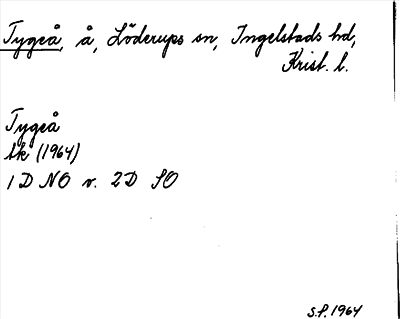 Tygeå, å, Löderups sn, Ingelstads hd,
Krist. l.
Tygeå
bk (1964)
1 D NO v. 2D SO
S.P. 1964